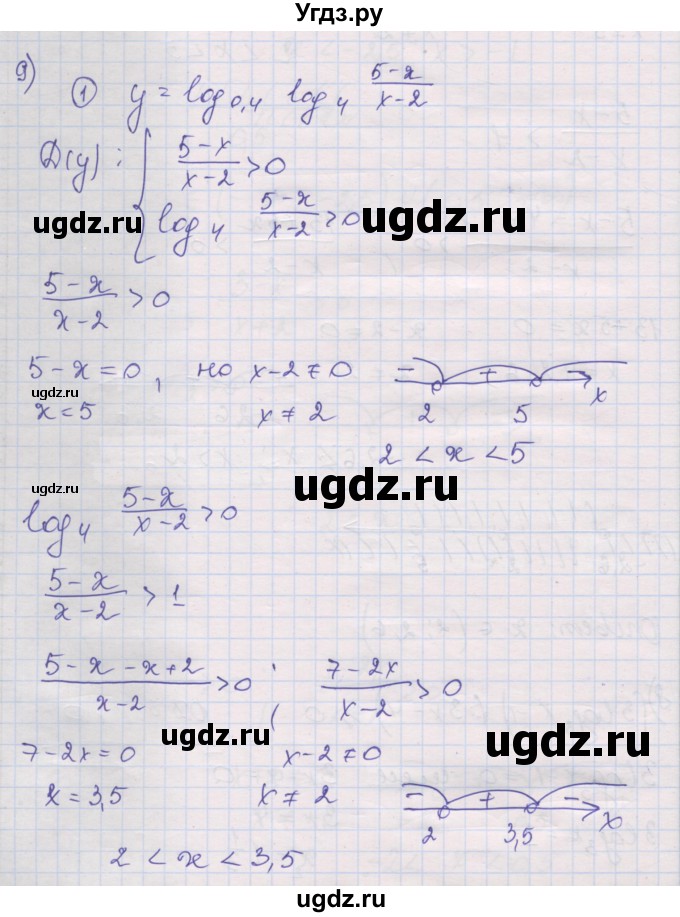 Угдз.ру
9)
① y = log₀,₄ log₄ (5-x)/(x-2)
D(y): { (5-x)/(x-2) > 0
log₄ (5-x)/(x-2) > 0
ugdz.ru ugdz.ru
(5-x)/(x-2) > 0
5-x=0, но x-2≠0 - + - x
ugdz.ru
x=5 x≠2 2 5
2 < x < 5
ugdz.ru ugdz.ru
log₄ (5-x)/(x-2) > 0
(5-x)/(x-2) > 1
(5-x-x+2)/(x-2) > 0; (7-2x)/(x-2) > 0
ugdz.ru ugdz.ru
7-2x=0 x-2≠0
x=3,5 x≠2 - + - x
2 3,5
2 < x < 3,5
ugdz.ru